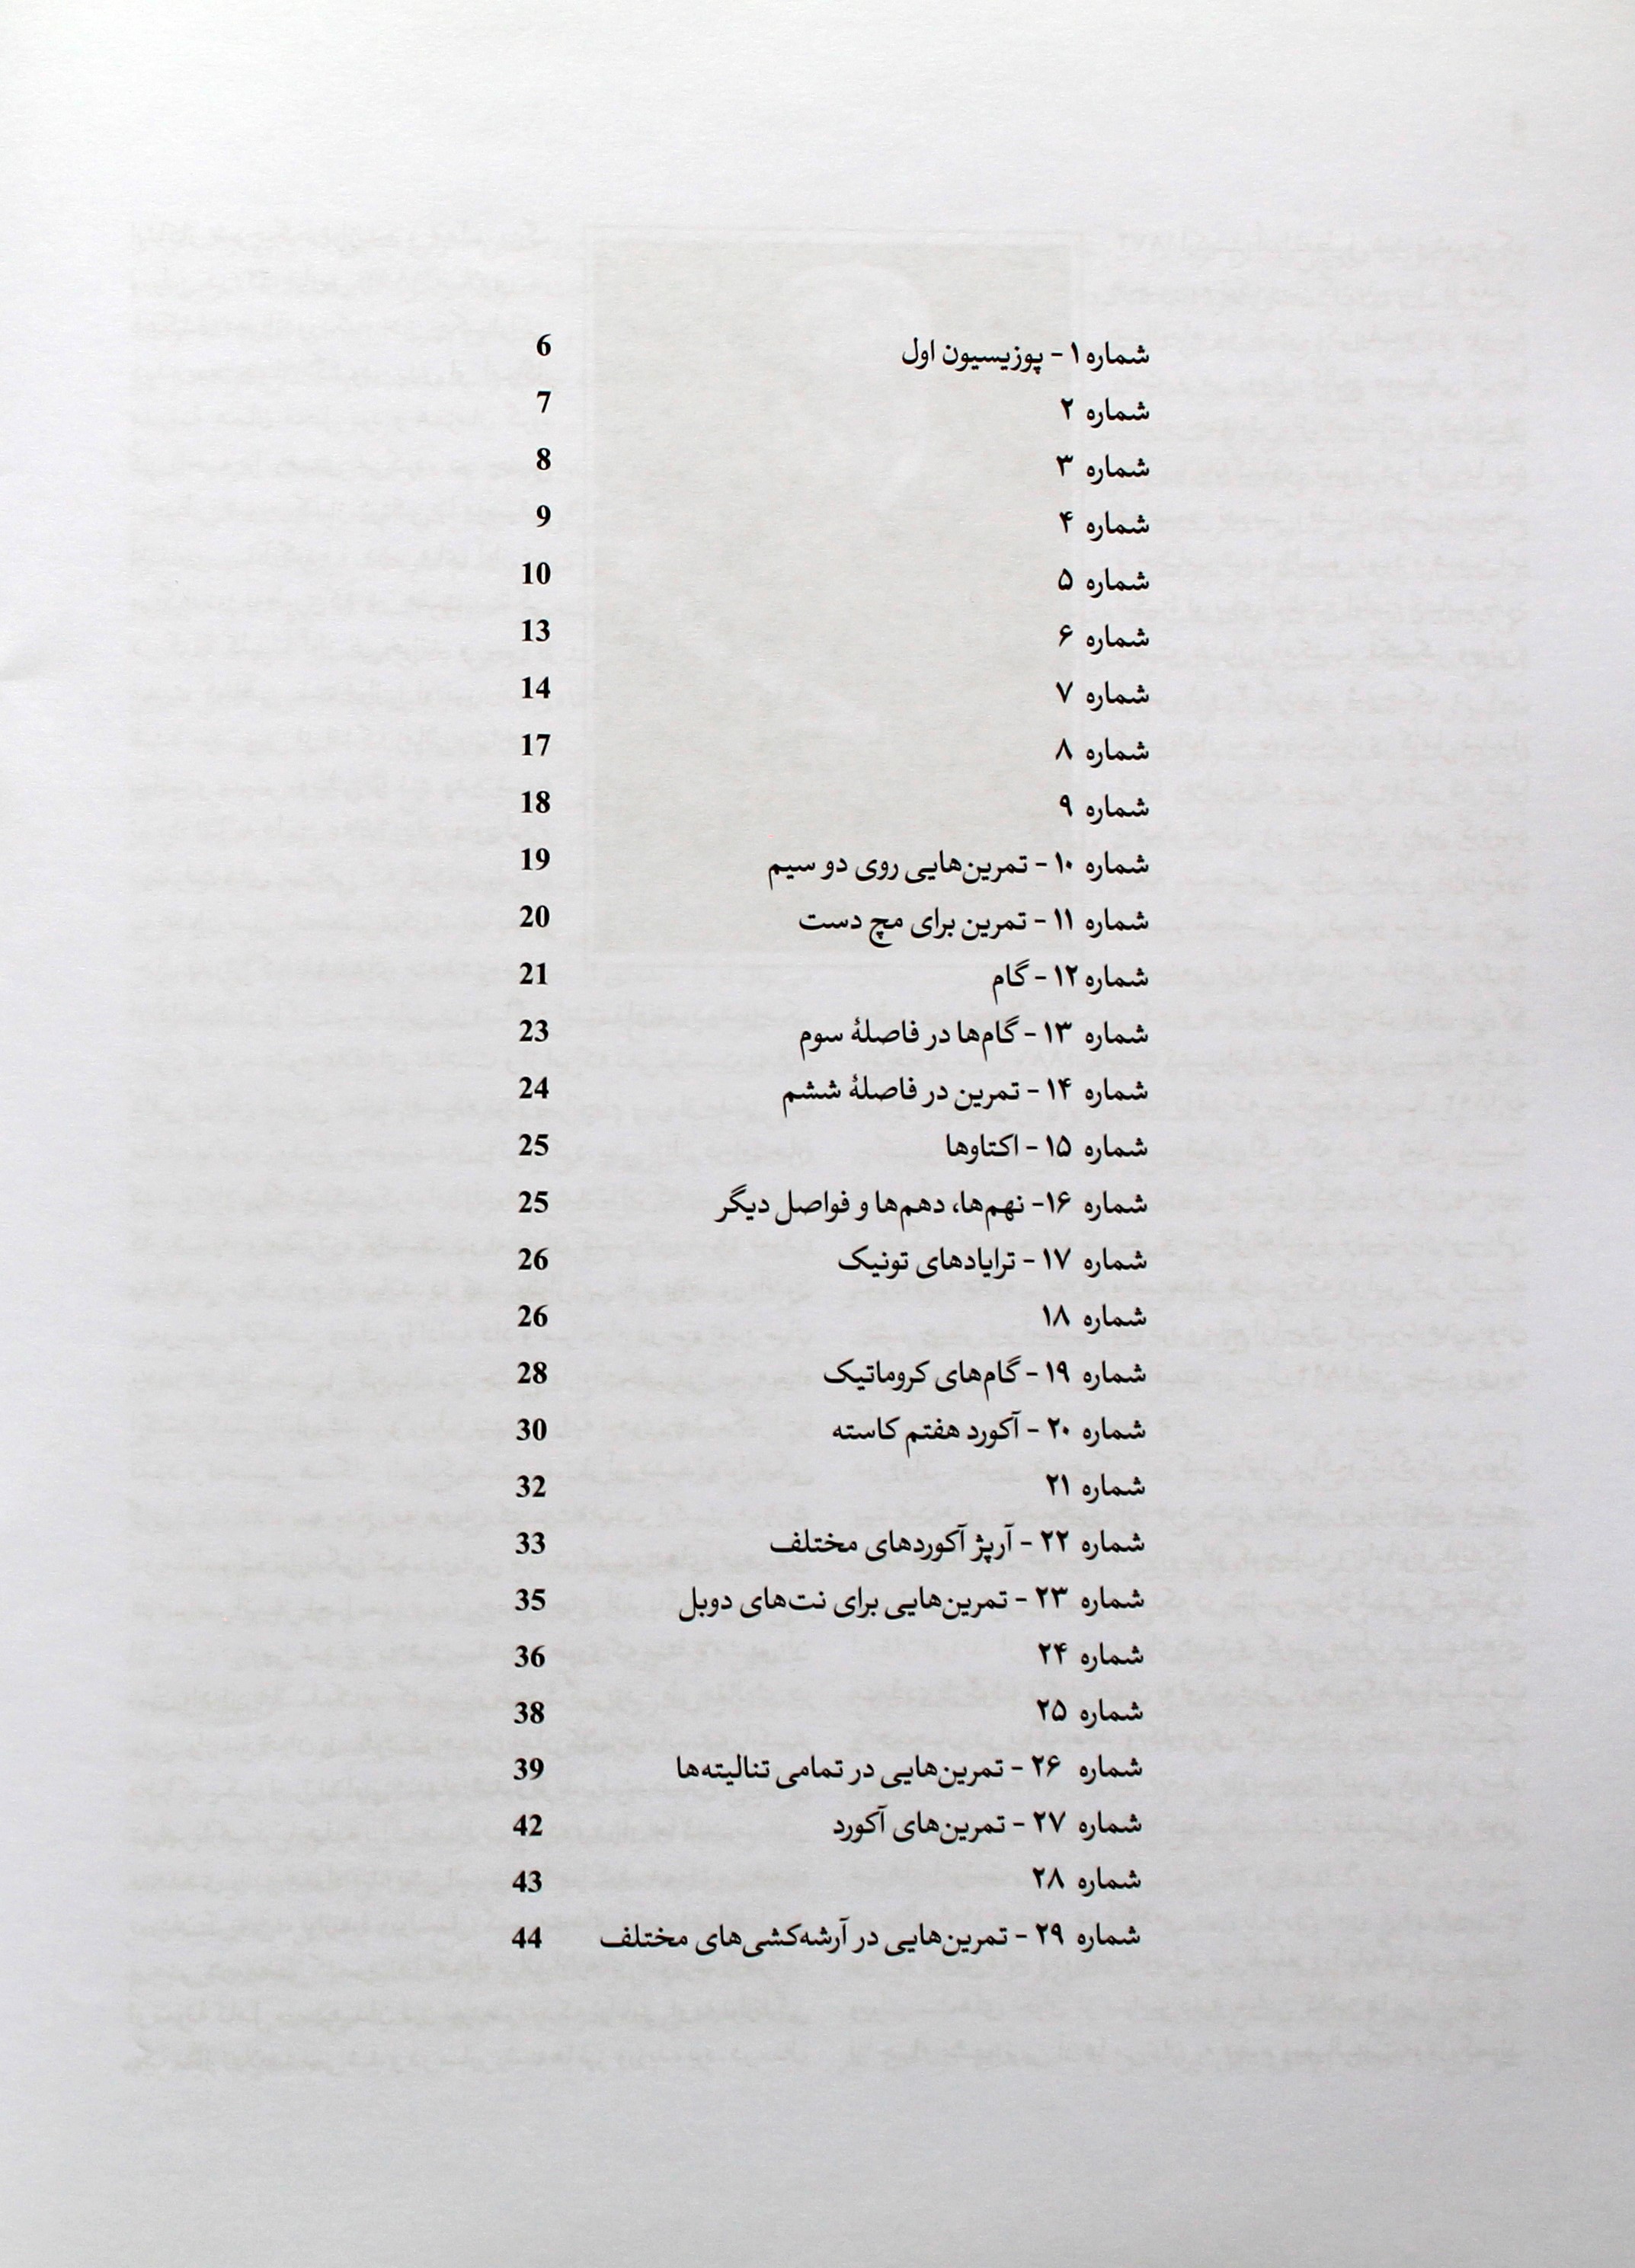 شماره ۱ - پوزیسیون اول 6
شماره ۲ 7
شماره ۳ 8
شماره ۴ 9
شماره ۵ 10
شماره ۶ 13
شماره ۷ 14
شماره ۸ 17
شماره ۹ 18
شماره ۱۰ - تمرین‌هایی روی دو سیم 19
شماره ۱۱ - تمرین برای مچ دست 20
شماره ۱۲ - گام 21
شماره ۱۳ - گام‌ها در فاصلهٔ سوم 23
شماره ۱۴ - تمرین در فاصلهٔ ششم 24
شماره ۱۵ - اکتاوها 25
شماره ۱۶- نهم‌ها، دهم‌ها و فواصل دیگر 25
شماره ۱۷ - ترایادهای تونیک 26
شماره ۱۸ 26
شماره ۱۹ - گام‌های کروماتیک 28
شماره ۲۰ - آکورد هفتم کاسته 30
شماره ۲۱ 32
شماره ۲۲ - آرپژ آکوردهای مختلف 33
شماره ۲۳ - تمرین‌هایی برای نت‌های دوبل 35
شماره ۲۴ 36
شماره ۲۵ 38
شماره ۲۶ - تمرین‌هایی در تمامی تنالیته‌ها 39
شماره ۲۷ - تمرین‌های آکورد 42
شماره ۲۸ 43
شماره ۲۹ - تمرین‌هایی در آرشه‌کشی‌های مختلف 44